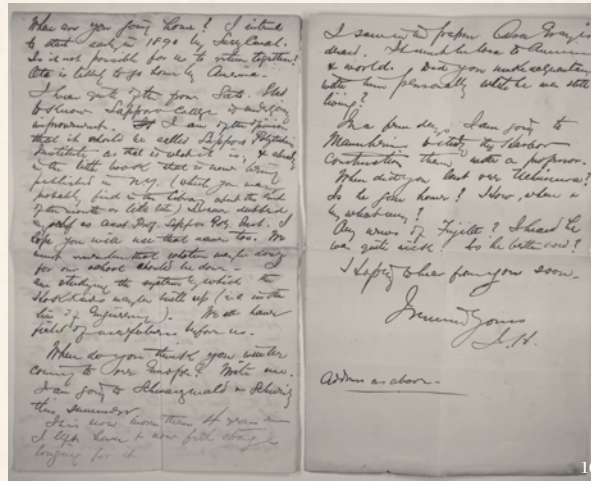 When are you going home? I intend
to start early in 1890 by Suez Canal.
Is it not possible for us to return together?
Ota is likely to go home by America.
I hear quite often from Sato. Glad
to know Sapporo College is undergoing
improvement. I am of the opinion
that it should be called Sapporo Polytechnic
Institute as that is what it is, & already
in the little book that is now being
published in N.Y. (which you may
probably find in the library about the end
of the month or little later) I have dubbed
myself as Asst. Prof. Sapporo Poly. Inst. I
hope you will use that name too. We
must remember that whatever may be doing
for our school should be done. I
am studying the system by which the
may be built up (i.e. in the
line of Engineering). We all have
field of usefulness before us.
When do you think you
coming to over Europe? Write me.
I am going to Schwarzwald &
this summer.
It is now more than 4 years since
I left home & now feel strange
longing for it
I saw in newspaper Asa Gray is
dead. It must be loss to America
& world. Did you make acquaintance
with him personally while he was still
living?
In a few days, I am going to
Mannheim to study the Harbor
Construction there, under a professor.
When did you last see Uchimura?
Is he gone home? How, when &
by what way?
Any news of Fujita? I heard he
was quite sick. Is he better now?
I hope to hear from you soon.
Yours
I. H.
Address as above.